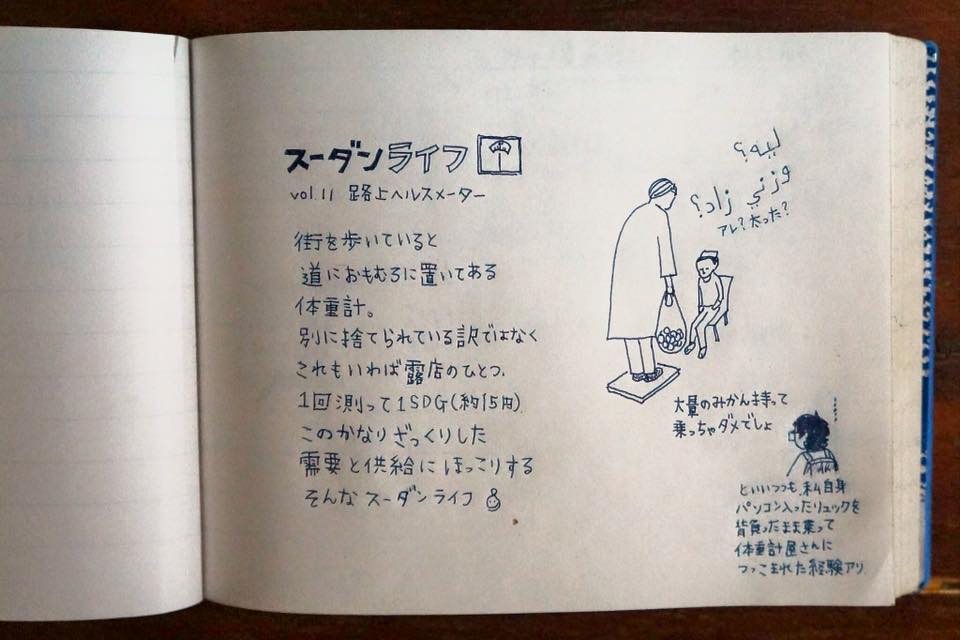 スーダンライフ
vol.11 路上ヘルスメーター
街を歩いていると
道におもむろに置いてある
体重計。
別に捨てられている訳ではなく
これもいわば露店のひとつ.
1回測って1SDG(約15円)
このかなりざっくりした
需要と供給にほっこりする
そんなスーダンライフ
ليه؟
وزني زاد؟
アレ?太った?
大量のみかん持って
乗っちゃダメでしょ
といいつつも、私自身
パソコン入ったリュックを
背負ったまま乗って
体重計屋さんに
つっこまれた経験アリ